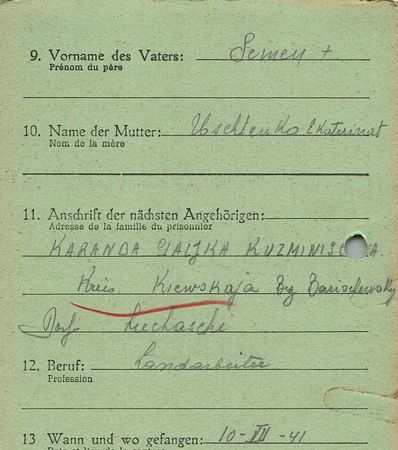 9. Vorname des Vaters: Semen +
Prénom du père
10. Name der Mutter: Uschtenko Ekaterina+
Nom de la mère
11. Anschrift der nächsten Angehörigen:
Adresse de la famille du prisonnier
KARANDA GALJKA
Kreis Kiewskaja Bz Barischewsky
Dorf
12. Beruf: Landarbeiter
Profession
13 Wann und wo gefangen: 10-VII-41